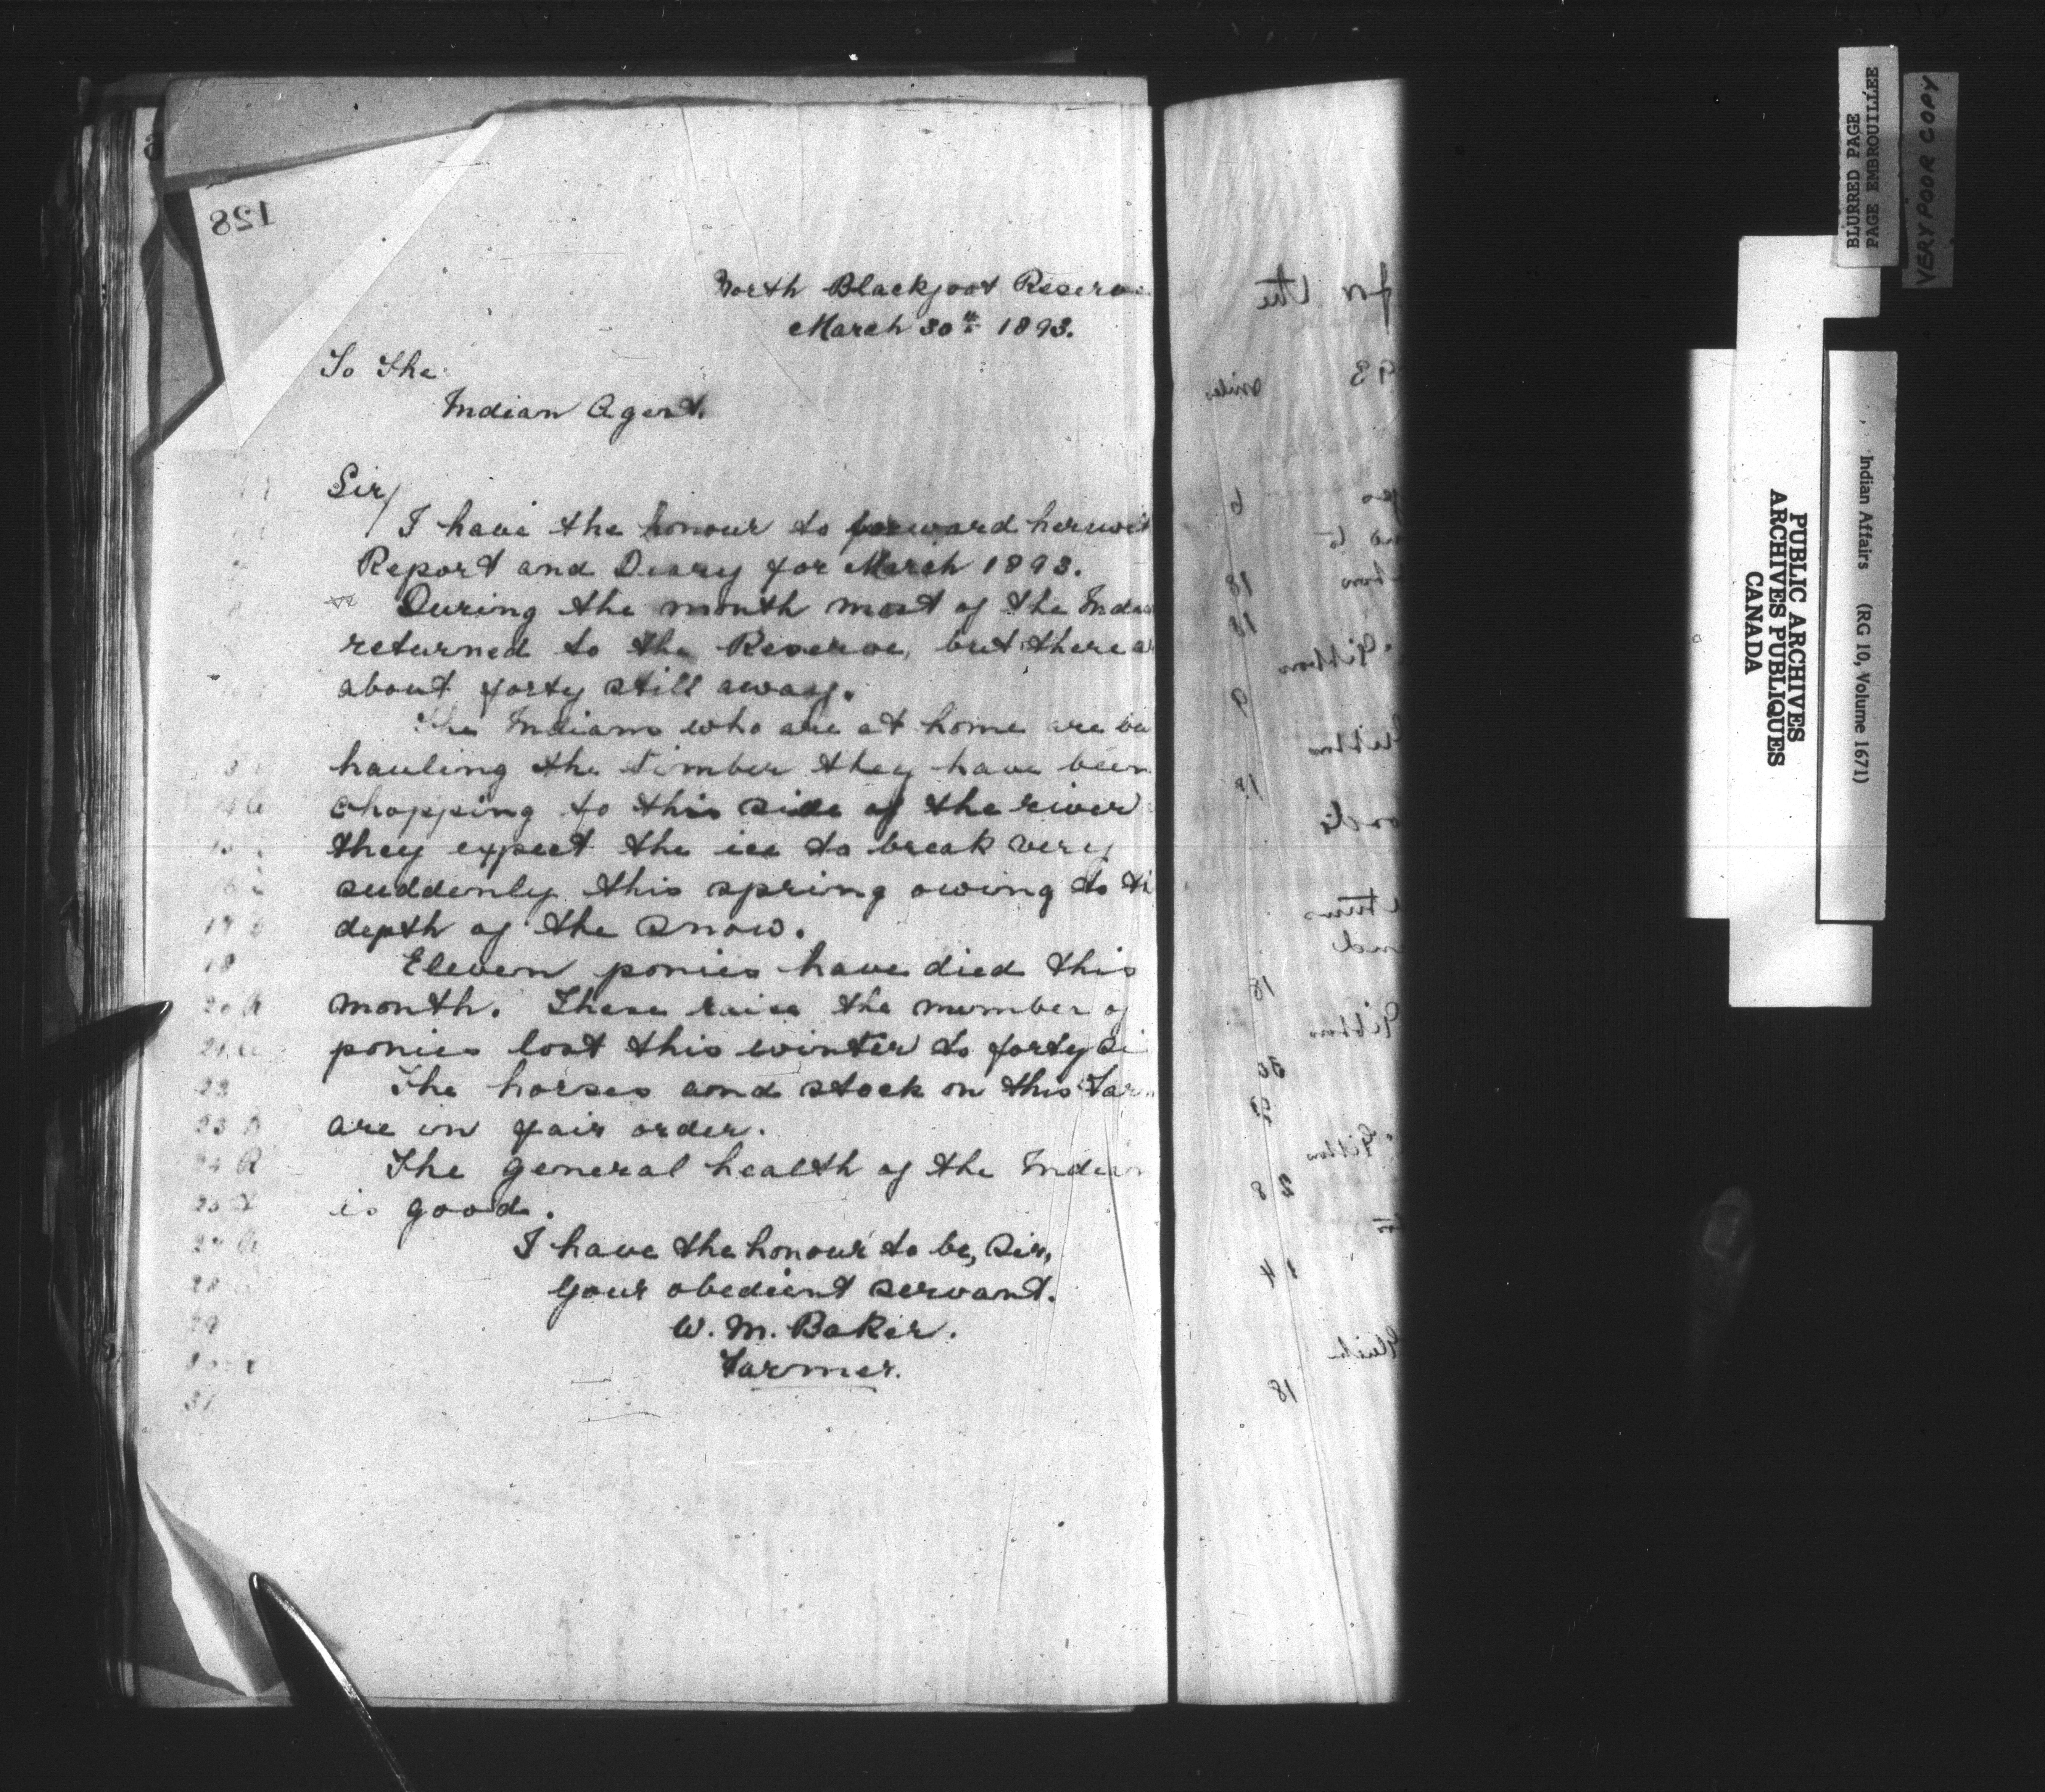 128
North Blackfoot Reserve
March 30th 1893.
To The
Indian Agent.
Sir/
I have the honour to forward herewit
Report and Diary for March 1893.
During the month most of the India
returned to the Reserve, but there a
about forty still away.
The Indians who are at home are
hauling the timber they have been
chopping to this side of the river
they expect the ice to break very
suddenly this spring owing to th
depth of the snow.
Eleven ponies have died this
month. These raise the number of
ponies lost this winter to forty si
The horses and stock on this Farm
are in fair order.
The general health of the Indian
is good.
I have the honour to be, Sir,
Your obedient servant.
W. M. Baker.
Farmer.
17
18
20
21
23
24 R
28
29
31
for the
93
mile
6
18
18
Gibbon
9
18
Gibbon
30
Gibbon
28
14
18
BLURRED PAGE
PAGE EMBROUILLÉE
VERY POOR COPY
PUBLIC ARCHIVES
ARCHIVES PUBLIQUES
CANADA
Indian Affairs (RG 10, Volume 1671)